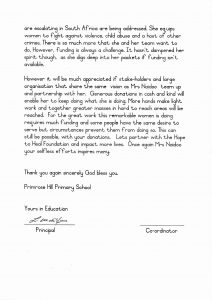 are escalating in South Africa are being addressed. She equips
women to fight against violence, child abuse and a host of other
crimes. There is so much more that she and her team want to
do. However, funding is always a challenge. It hasn't dampened her
spirit though, as she digs deep into her pockets if funding isn't
available.
However it will be much appreciated if stake-holders and large
organisation that share the same vision as Mrs Naidoo team up
and partnership with her. Generous donations in cash and kind will
enable her to keep doing what she is doing. More hands make light
work and together greater masses in hard to reach areas will be
reached. For the great work this remarkable women is doing
requires much funding and some people have the same desire to
serve but circumstances prevent them from doing so. This can
still be possible, with your donations. Lets partner with the Hope
to Heal Foundation and impact more lives. Once again Mrs Naidoo
your selfless efforts inspires many.
Thank you again sincerely God bless you.
Primrose Hill Primary School
Yours in Education
Principal
Co-ordinator